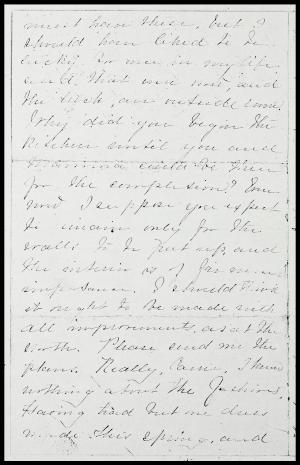 must have these, but I
should have liked to be
lucky for once in my life
and the
Why did you begin the
kitchen until you and
Mamma could be there
for the completion? Even
now I suppose you expect
to only for the
walls to be put up, and
the interior is of far more
importance. I should think
it ought to be made with
all improvements, as at the
North. Please send me the
plans. Really, I know
nothing about the fashions,
having had but one dress
made this spring, and